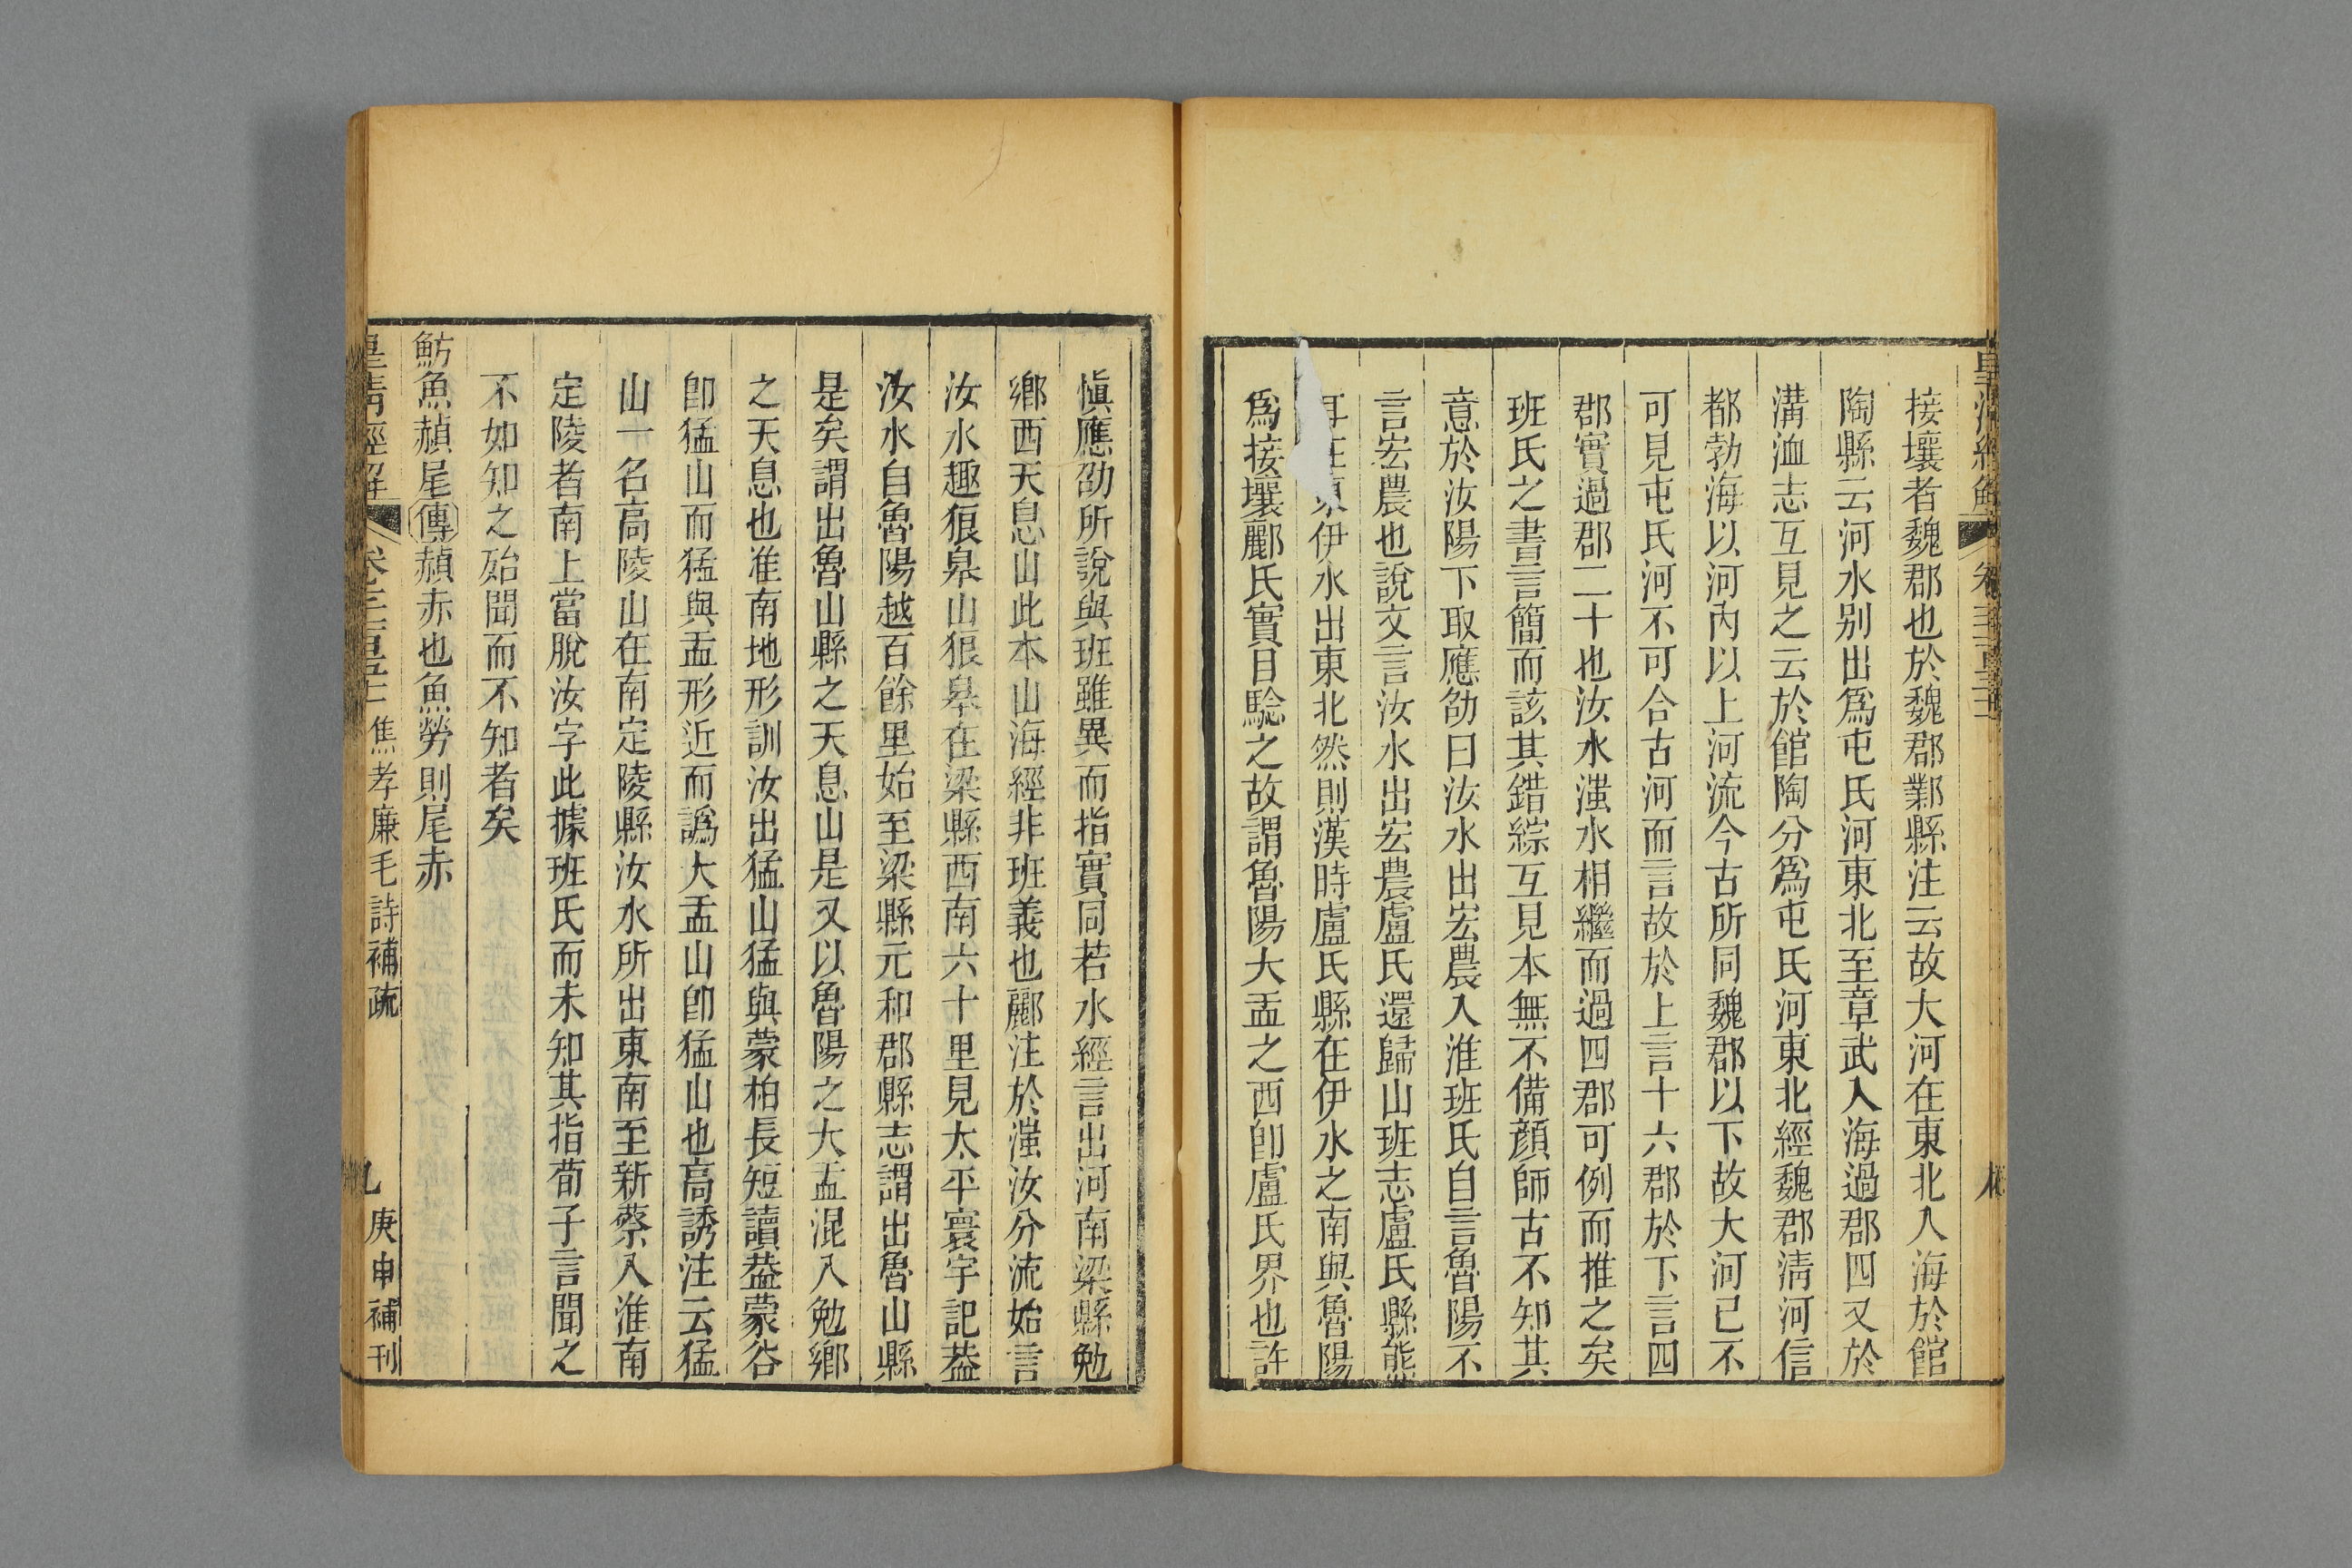 接壤者魏郡也於魏郡鄴縣注云故大河在東北入海於館
陶縣云河水别出爲屯氏河東北至章武入海過郡四又於
溝洫志互見之云於館陶分爲屯氏河東北經魏郡清河信
都勃海以河內以上河流今古所同魏郡以下故大河已不
可見屯氏河不可合古河而言故於上言十六郡於下言四
郡實過郡二十也汝水滍水相繼而過四郡可例而推之矣
班氏之書言簡而該其錯綜互見本無不備顔師古不知其
意於汝陽下取應劭曰汝水出宏農入淮班氏自言魯陽不
言宏農也說文言汝水出宏農盧氏還歸山班志盧氏縣熊
耳在東伊水出東北然則漢時盧氏縣在伊水之南與魯陽
爲接壤酈氏實目騐之故謂魯陽大盂之西卽盧氏界也許
愼應劭所說與班雖異而指實同若水經言出河南梁縣勉
鄉西天息山此本山海經非班義也酈注於滍汝分流始言
汝水趣狼皋山狼皋在梁縣西南六十里見太平寰宇記葢
汝水自魯陽越百餘里始至梁縣元和郡縣志謂出魯山縣
是矣謂出魯山縣之天息山是又以魯陽之大盂混入勉鄉
之天息也淮南地形訓汝出猛山猛與蒙柏長短讀葢蒙谷
卽猛山而猛與盂形近而譌大盂山卽猛山也高誘注云猛
山一名高陵山在南定陵縣汝水所出東南至新蔡入淮南
定陵者南上當脫汝字此據班氏而未知其指荀子言聞之
不如知之殆聞而不知者矣
魴魚赬尾傳赬赤也魚勞則尾赤
皇清經解 焦孝廉毛詩補疏 九 庚申補刊